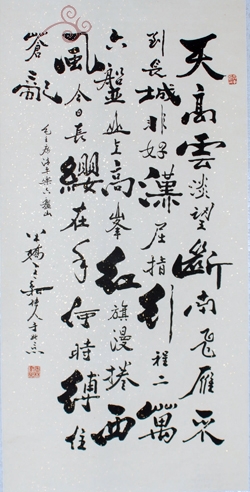 天高雲淡望斷南飛雁不
到長城非好漢屈指行程二萬
六盤山上高峯紅旗漫捲西
風今日長纓在手何時縛住
蒼龍
毛主席清平樂六盤山